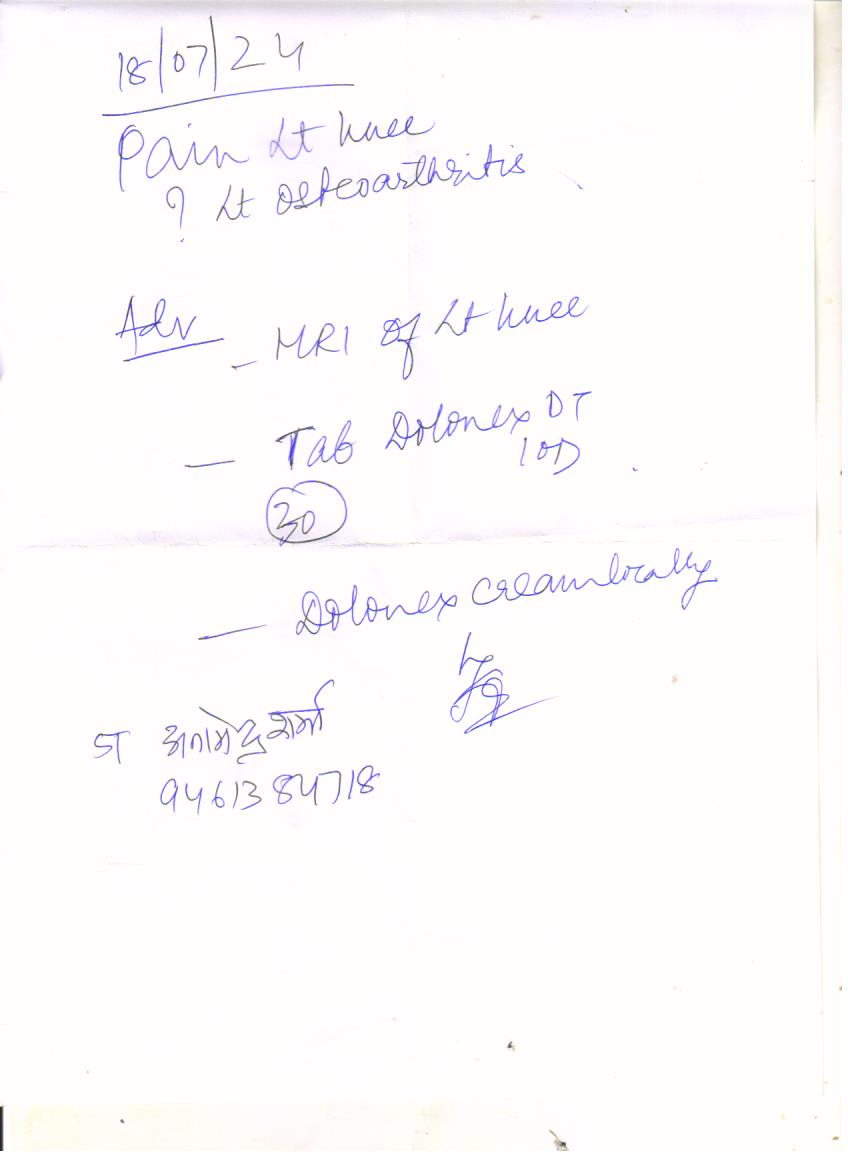 18/07/24
Pain Lt knee
? Lt Osteoarthritis
Adv - MRI of Lt knee
- Tab Dolonex DT
1OD
30
- Dolonex cream locally
शर्मा
9461384718